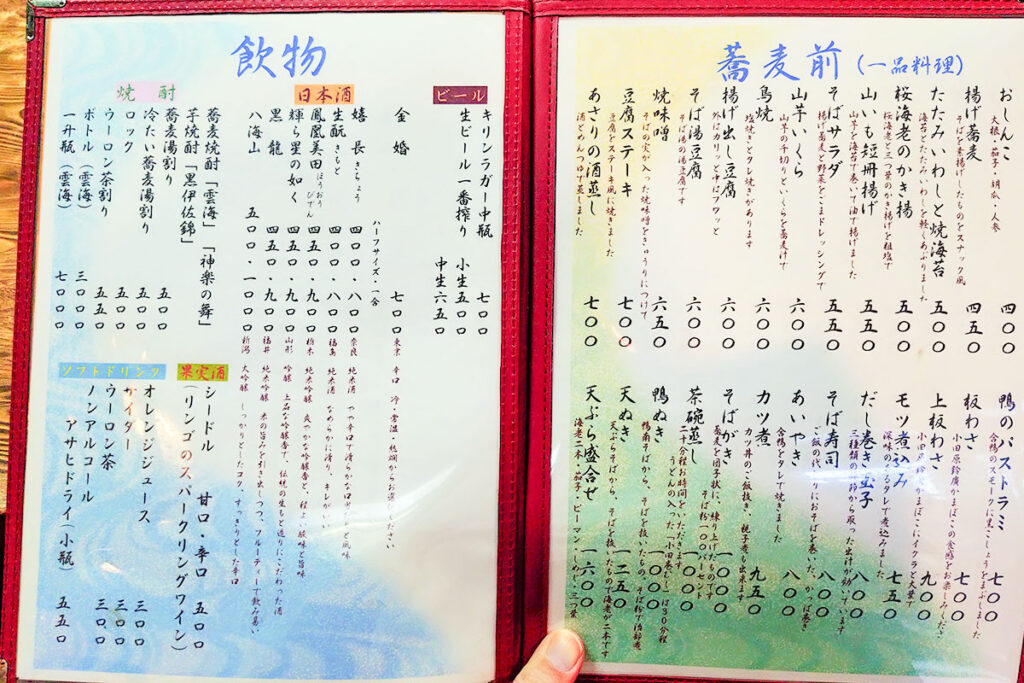 蕎麦前(一品料理)
おしんこ 四〇〇
大根・茄子・胡瓜・人参
揚げ蕎麦 四五〇
そばを素揚げしたものをスナック風
たたみいわしと焼海苔 五五〇
海苔とたたみいわしを軽くあぶりました
桜海老のかき揚 五〇〇
桜海老と三つ葉のかき揚げを粗塩で
山いも短冊揚げ 五五〇
山芋を海苔で巻いて油で揚げました
そばサラダ 五五〇
揚げ蕎麦と野菜をごまドレッシングで
山芋いくら 六〇〇
山芋の千切りといくらを蕎麦汁で
鳥焼 六〇〇
塩焼きとタレ焼きがあります
揚げ出し豆腐 六〇〇
外はカリッと中はフワッと
そば湯豆腐 六〇〇
そば湯の湯豆腐です
焼味噌 六五〇
そばの実が入った焼味噌をきゅうりにつけて
豆腐ステーキ 七〇〇
豆腐をステーキ風に焼きました
あさりの酒蒸し 七〇〇
酒どめんつゆで蒸しました
鴨のパストラミ 七〇〇
合鴨のスモークに黒こしょうをまぶしました
板わさ 七〇〇
小田原鈴廣かまぼこの食感をお楽しみください
上板わさ 九〇〇
小田原鈴廣かまぼこにイクラと大葉で
モツ煮込み 七五〇
深味のあるタレで煮込みました
だし巻き玉子 八〇〇
三種類の節から取った出汁が効いています
そば寿司 八〇〇
ご飯の代わりにおそばを巻いた、かっぱ巻き
あいやき 八〇〇
合鴨をタレで焼きました
カツ煮 九五〇
カツ丼のご飯抜き、親子煮も出来ます
そばがき 一〇〇〇
蕎麦を団子状に、練り上げたものです
そば粉一〇〇パーセント
茶碗蒸し 一〇〇〇
二十分程お時間をいただきます
うどんの入った「小田巻むし」は30分程
鴨ぬき 一一〇〇
鴨南そばから、そばを抜いたもの。そば粉で治部煮
天ぬき 一二五〇
天ぷらそばから、そばを抜いたもので海老が二本です
天ぷら盛合せ 一六〇〇
海老二本・茄子・ピーマン・しめじ・三つ葉
飲物
ビール
キリンラガー中瓶 七〇〇
生ビール一番搾り 小生五〇〇
中生六五〇
日本酒
ハーフサイズ・一合
金婚 七〇〇 東京 辛口 冷・常温・熱燗からお選びください
嬉長 ききちょう 四〇〇・八〇〇 奈良 純米酒 つや辛口で滑らかな口当たりと風味
生酛 きもと 四〇〇・八〇〇 福島 純米酒 なめらかに滑り、キレがいい
鳳凰美田 ほうおうびでん 四五〇・九〇〇 栃木 純米吟醸 爽やかな吟醸香と、程よい酸味と旨味
輝ら星の如く 四五〇・九〇〇 山形 吟醸 上品な吟醸香で、伝統の生もと造りにこだわった酒
黒龍 四五〇・九〇〇 福井 純米吟醸 米の旨みを引き出しつつ、フルーティーで飲み易い
八海山 五〇〇・一〇〇〇 新潟 大吟醸 しっかりとしたコク、すっきりとした辛口
焼酎
蕎麦焼酎「雲海」「神楽の舞」
芋焼酎「黒伊佐錦」
蕎麦湯割り 五〇〇
冷たい蕎麦湯割り 五五〇
ロック 五〇〇
ウーロン茶割り 五五〇
ボトル(雲海) 三〇〇〇
一升瓶(雲海) 七〇〇〇
果実酒
シードル 甘口・辛口 五〇〇
(リンゴのスパークリングワイン)
ソフトドリンク
オレンジジュース 三〇〇
サイダー 三〇〇
ウーロン茶 三〇〇
ノンアルコール
アサヒドライ(小瓶) 五五〇